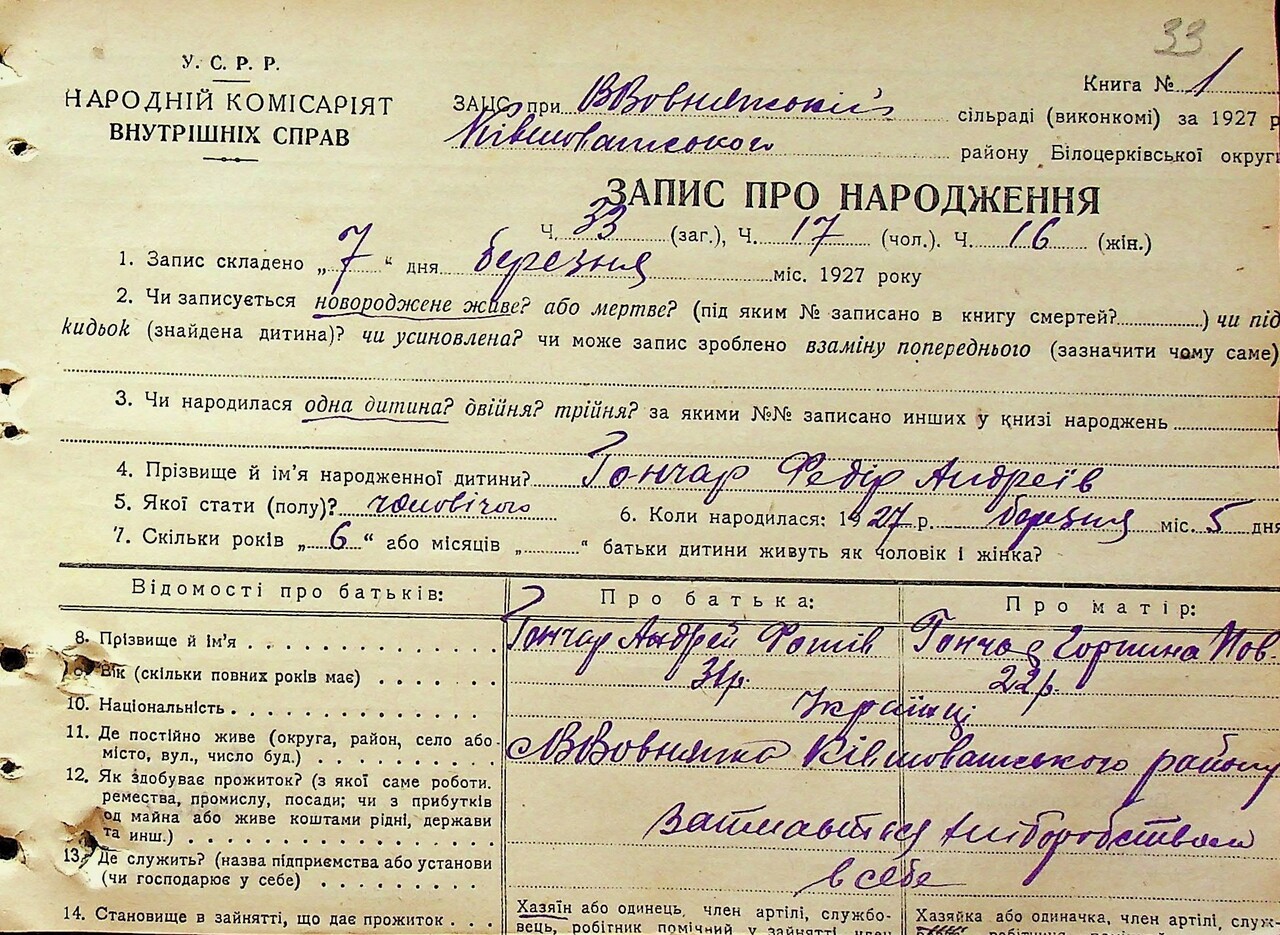 33
У. С. Р. Р.
НАРОДНІЙ КОМІСАРІЯТ
ВНУТРІШНІХ СПРАВ
Книга № 1
ЗАЦС при ВВовнянській сільраді (виконкомі) за 1927 р
Ківшоватського району Білоцерківської округи
ЗАПИС ПРО НАРОДЖЕННЯ
Ч. 33 (заг.), Ч. 17 (чол.). Ч. 16 (жін.)
1. Запис складено „ 7 “ дня березня міс. 1927 року
2. Чи записується новороджене живе? або мертве? (під яким № записано в книгу смертей?) чи під
кидьок (знайдена дитина)? чи усиновлена? чи може запис зроблено взаміну попереднього (зазначити чому саме)
3. Чи народилася одна дитина? двійня? трійня? за якими №№ записано инших у книзі народжень
4. Прізвище й ім'я народженної дитини? Гончар Федір Андреїв
5. Якої стати (полу)? чоловічого 6. Коли народилася: 1927 р. березня міс. 5 дня
7. Скільки років „ 6 “ або місяців „ “ батьки дитини живуть як чоловік і жінка?
Відомості про батьків: Про батька: Про матір:
8. Прізвище й ім'я Гончар Андрей Фотів Гончар Горпина
9. Вік (скільки повних років має) 31р. 22р.
10. Національність Українці
11. Де постійно живе (округа, район, село або
місто, вул., число буд.) ВВовнянка Ківшоватського району
12. Як здобуває прожиток? (з якої саме роботи.
ремества, промислу, посади; чи з прибутків
од майна або живе коштами рідні, держави
та инш.) хліборобством
13. Де служить? (назва підприємства або установи
(чи господарює у себе) в себе
14. Становище в зайнятті, що дає прожиток
Хазяїн або одинець, член артілі, службо-
вець, робітник помічний у зайнятті, член
Хазяйка або одиначка, член артілі, служ-